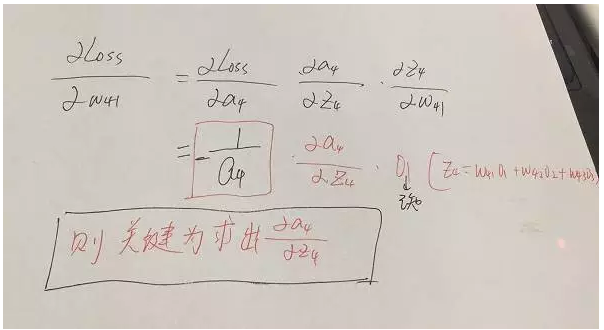 ∂Loss/∂w41 = ∂Loss/∂a4 ∂a4/∂z4 · ∂z4/∂w41
= -1/a4 · ∂a4/∂z4 · O1 [z4=w41O1+w42O2+w43O3
已知
则关键为求出 ∂a4/∂z4